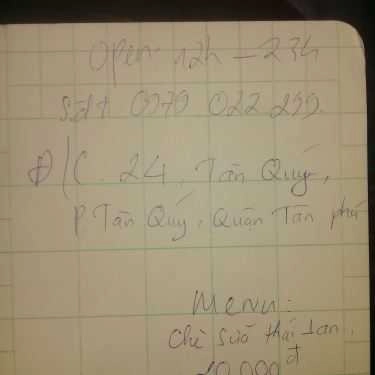 Open: 12h - 23h
SĐT 0970 022 299
Đ/C. 24, Tân Quý,
P Tân Quý, Quận Tân phú
Menu:
Chè sữa thái lan,
đ